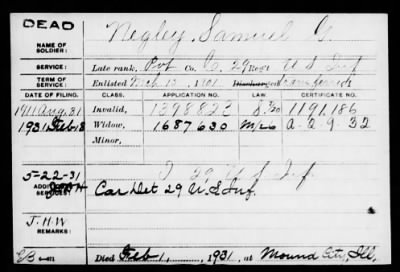 DEAD
NAME OF SOLDIER: Negley, Samuel G.
SERVICE: Late rank, Pvt Co. C, 29 Reg't U S Inf
TERM OF SERVICE: Enlisted Mch 12, 1901 Discharged transferred
DATE OF FILING. CLASS. APPLICATION NO. CERTIFICATE NO.
1911 Aug. 31 Invalid, 1398823 1191,186
1931 Feb 18 Widow, 1687630 A-2-9-32
Minor,
5-22-31 29 U S Inf
ADDITIONAL SERVICES: Car Det 29 U S Inf.
J.H.W
REMARKS:
Died Feb 1, 1931, at Mound City, Ill,